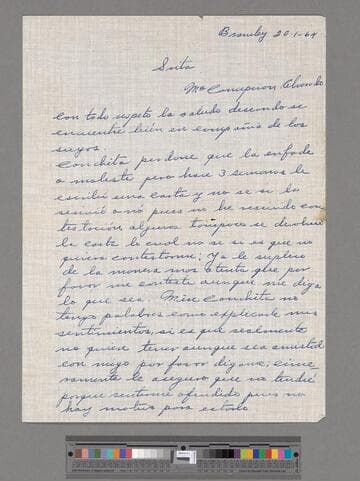 Brawley 20-1-64
Srita
Ma Concepcion Alvarado
Con todo respeto la saludo deseando se
encuentre bien en compañia de los
suyos.
Conchita perdone que la enfade
o moleste pero hace 3 semanas le
escribi una carta y no se si la
resivio o nó pues no he resivido con
testacion alguna tampoco se devolvio
la carta lo cual no se si es que no
quiere contestarme; Ya le suplico
de la manera mas atenta que por
favor me conteste aunque me diga
lo que sea. Mire Conchita no
tengo palabras como esplicarle mis
sentimientos, si es que realmente
no quiere tener aunque sea amistad
con migo por favor digame, cince
ramente le aseguro que no tendré
porque sentirme ofendido pues no
hay motivo para estarlo